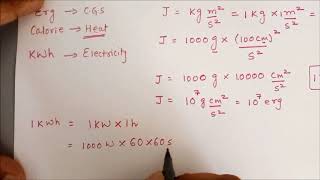 Erg → C.G.S
Calorie → Heat
KWh → Electricity
J = Kg m²/s² = 1Kg × 1m²/s²
J = 1000g × (100cm)²/s²
J = 1000g × 10000 cm²/s²
J = 10⁷ g cm²/s² = 10⁷ erg
1KWh = 1KW × 1h
= 1000W × 60 × 60s